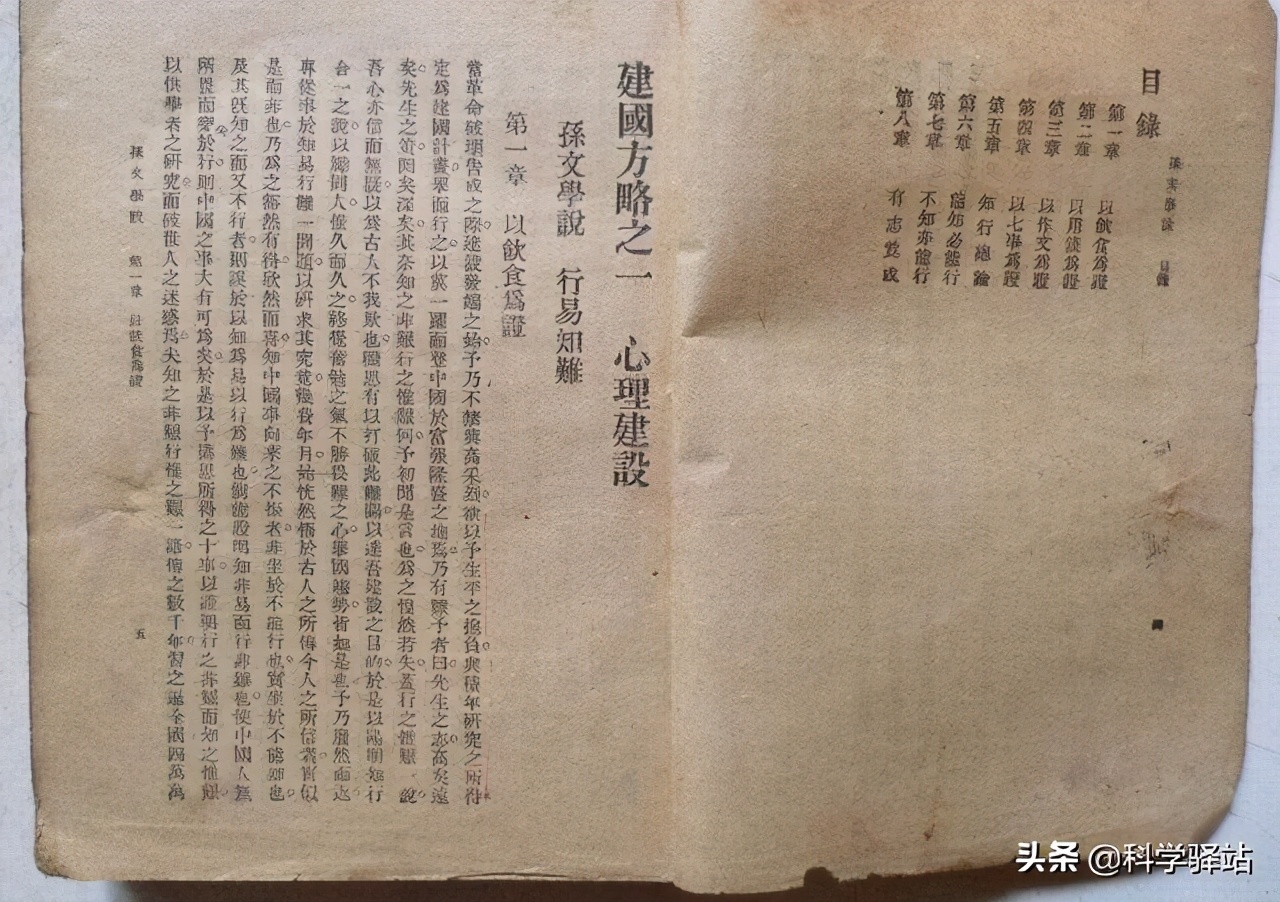 孫文學說 目錄
目錄
第一章 以飲食爲證
第二章 以用錢爲證
第三章 以作文爲證
第四章 以七事爲證
第五章 知行總論
第六章 能知必能行
第七章 不知亦能行
第八章 有志竟成
四
建國方略之一 心理建設
孫文學說 行易知難
第一章 以飲食爲證
當革命破壞告成之際。建設發端之始。予乃不禁興高采烈。欲以予生平之抱負。與積年研究之所得。
定爲建國計畫。舉而行之。以冀一躍而登中國於富強隆盛之地焉。乃有難予者曰。先生之志高矣遠
矣。先生之策閎矣深矣。其奈知之非艱行之惟艱何。予初聞是言也。爲之惶然若失。蓋行之惟艱一說。
吾心亦信而無疑。以爲古人不我欺也。繼思有以打破此難關。以達吾建設之目的。於是以陽明知行
合一之說。以勵同人。惟久而久之。終覺奮勉之氣。不勝畏難之心。舉國趨勢皆如是也。予乃廢然而返。
專從事於知易行難一問題。以研求其究竟。幾費年月。始恍然悟於古人之所傳今人之所信者。實似
是而非也。乃爲之豁然有得。欣然而喜。知中國事向來之不振者。非坐於不能行也。實坐於不能知也。
及其既知之而又不行者。則誤於以知爲易以行爲難也。倘能證明知非易而行非難也。使中國人無
所畏而樂於行。則中國之事大有可爲矣。於是以予搆思所得之十事。以證明行之非艱而知之惟艱。
以供學者之研究。而破世人之迷惑焉。夫知之非艱行惟之艱一語。傳之數千年。習之遍全國四萬萬
孫文學說 第一章 以飲食爲證
五
头条 @科学驿站